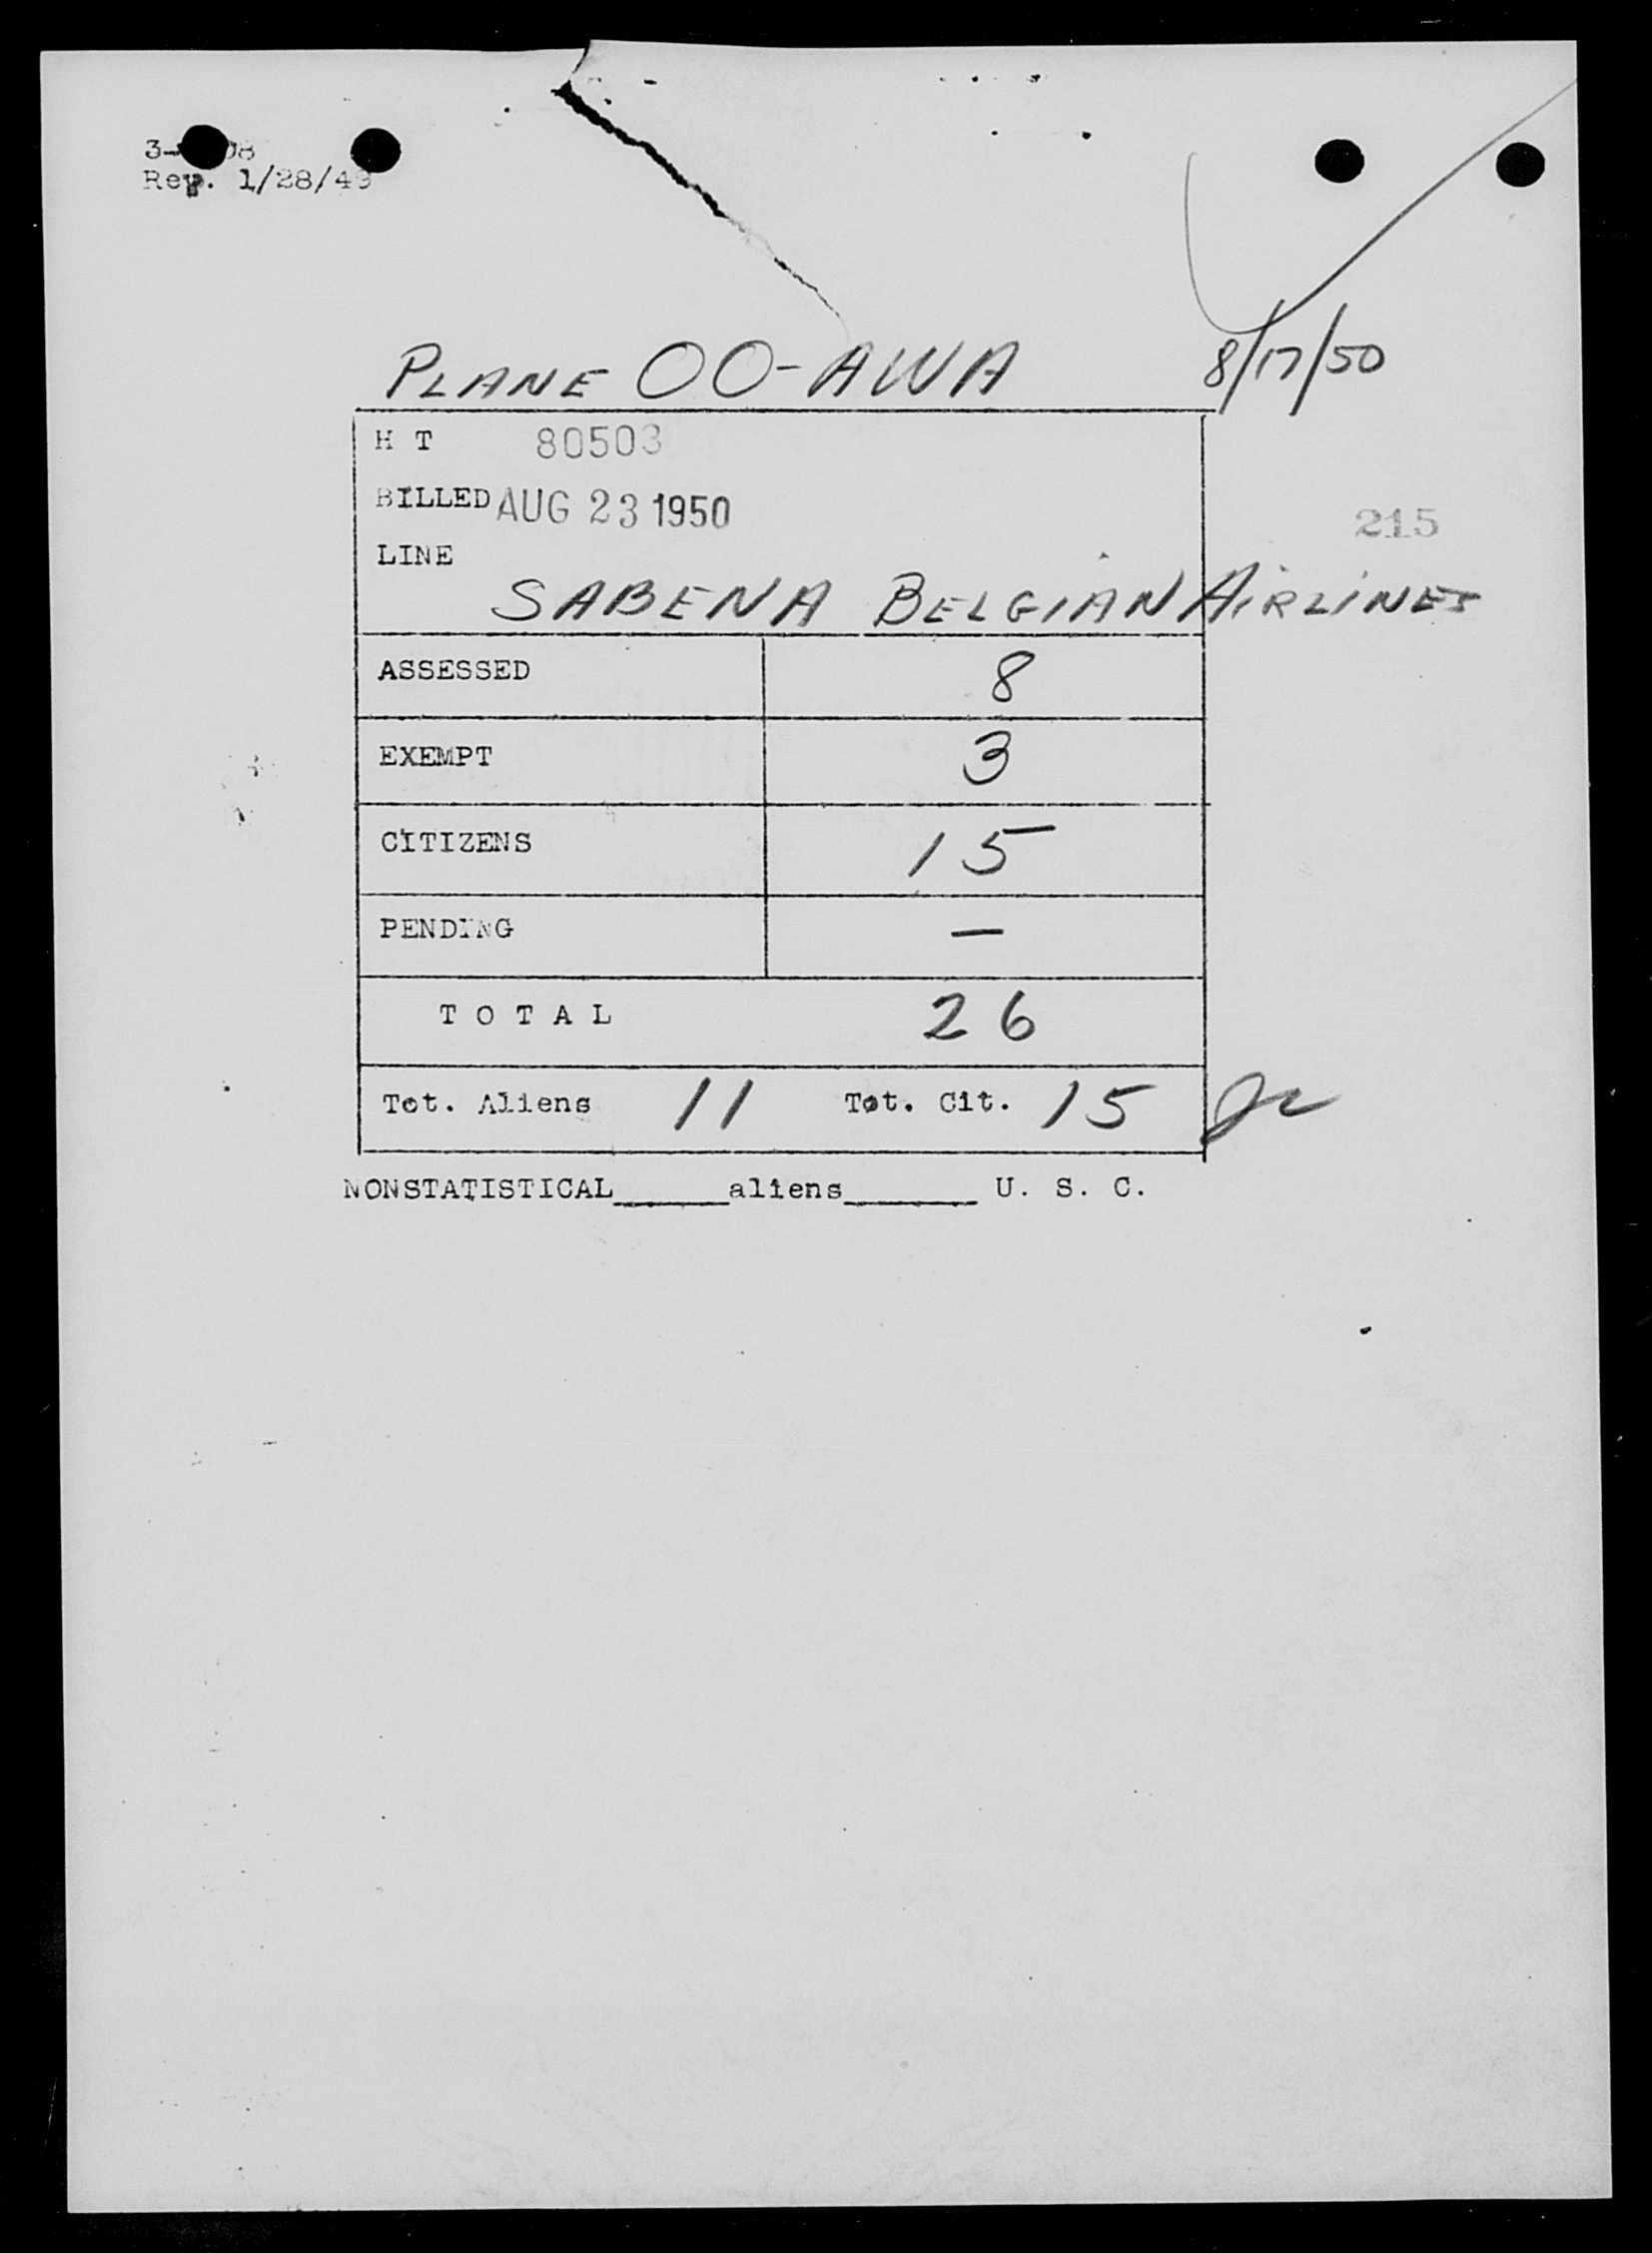 Rev. 1/28/49
PLANE OO-AWA 8/17/50
H T 80503
BILLED AUG 23 1950
215
LINE
SABENA BELGIAN AIRLINES
ASSESSED 8
EXEMPT 3
CITIZENS 15
PENDING —
T O T A L 26
Tot. Aliens 11 Tot. Cit. 15
NONSTATISTICAL______aliens_______ U. S. C.